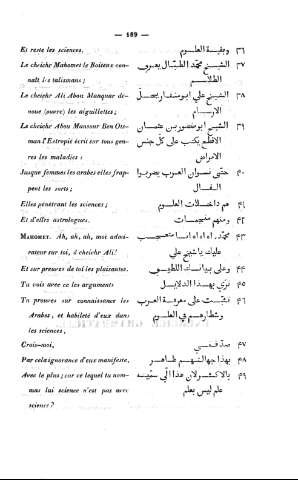 — 189 —
Et reste les sciences. وبقية العلوم ٣٦
Le cheikhe Mahomet le Boiteux con- الشيخ محمد الطبال يعرف ٣٧
naît les talismans; الطلاسم
Le cheikhe Ali Abou Manquar dé- الشيخ علي ابو منقار يحل ٣٨
noue (ouvre) les aiguillettes;
Le cheikhe Abou Mansour Ben Ots- الشيخ ابو منصور بن عثمان ٣٩
man l'Estropié écrit sur tous gen- يكتب على كل جنس
res les maladies: الامراض
Jusque femmes les arabes elles frap- حتى نسوان العرب يضربوا ٤٠
pent les sorts; الفال
Elles pénétrant les sciences; هم داخلات العلوم ٤١
Et d'elles astrologues. ومنهم منجمات ٤٢
MAHOMET. Ah, ah, ah, moi admi- محمد، اه اه اه انا متعجب ٤٣
rateur sur toi, ô cheikhe Ali! عليك يا شيخ علي
Et sur preuves de toi les plaisantes. وعلى بياناتك ٤٤
Tu vois avec ces les arguments ترى بهذا الدلايل ٤٥
Tu prouves sur connaissance les على معرفة العرب ٤٦
Arabes, et habileté d'eux dans وشطارهم في العلوم
les sciences,
Crois-moi, صدقني ٤٧
Par cela ignorance d'eux manifeste, بهذا جهالتهم ظاهر ٤٨
Avec le plus; car ce lequel tu nom- بالاكثر لان هذا الي ٤٩
mas lui science n'est pas avec علم ليس بعلم
science?